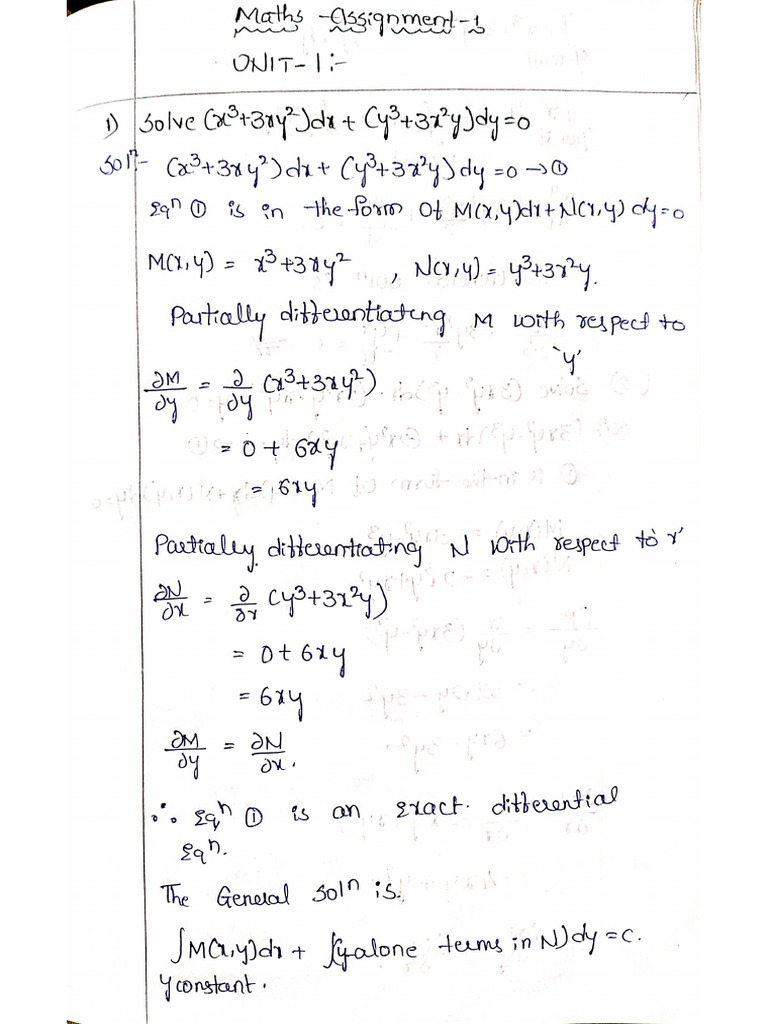 Maths -Assignment-1
UNIT-1:-
1) Solve (x³+3xy²)dx + (y³+3x²y)dy=0
Solⁿ:- (x³+3xy²)dx + (y³+3x²y)dy=0 →①
Eqⁿ ① is in the form of M(x,y)dx+N(x,y)dy=0
M(x,y) = x³+3xy² , N(x,y) = y³+3x²y.
Partially differentiating M with respect to
'y'
∂M/∂y = ∂/∂y (x³+3xy²)
= 0 + 6xy
= 6xy
Partially differentiating N with respect to 'x'
∂N/∂x = ∂/∂x (y³+3x²y)
= 0+ 6xy
= 6xy
∂M/∂y = ∂N/∂x.
∴ Eqⁿ ① is an exact differential
Eqⁿ.
The General Solⁿ is.
∫M(x,y)dx + ∫(y alone terms in N)dy = c.
y constant.